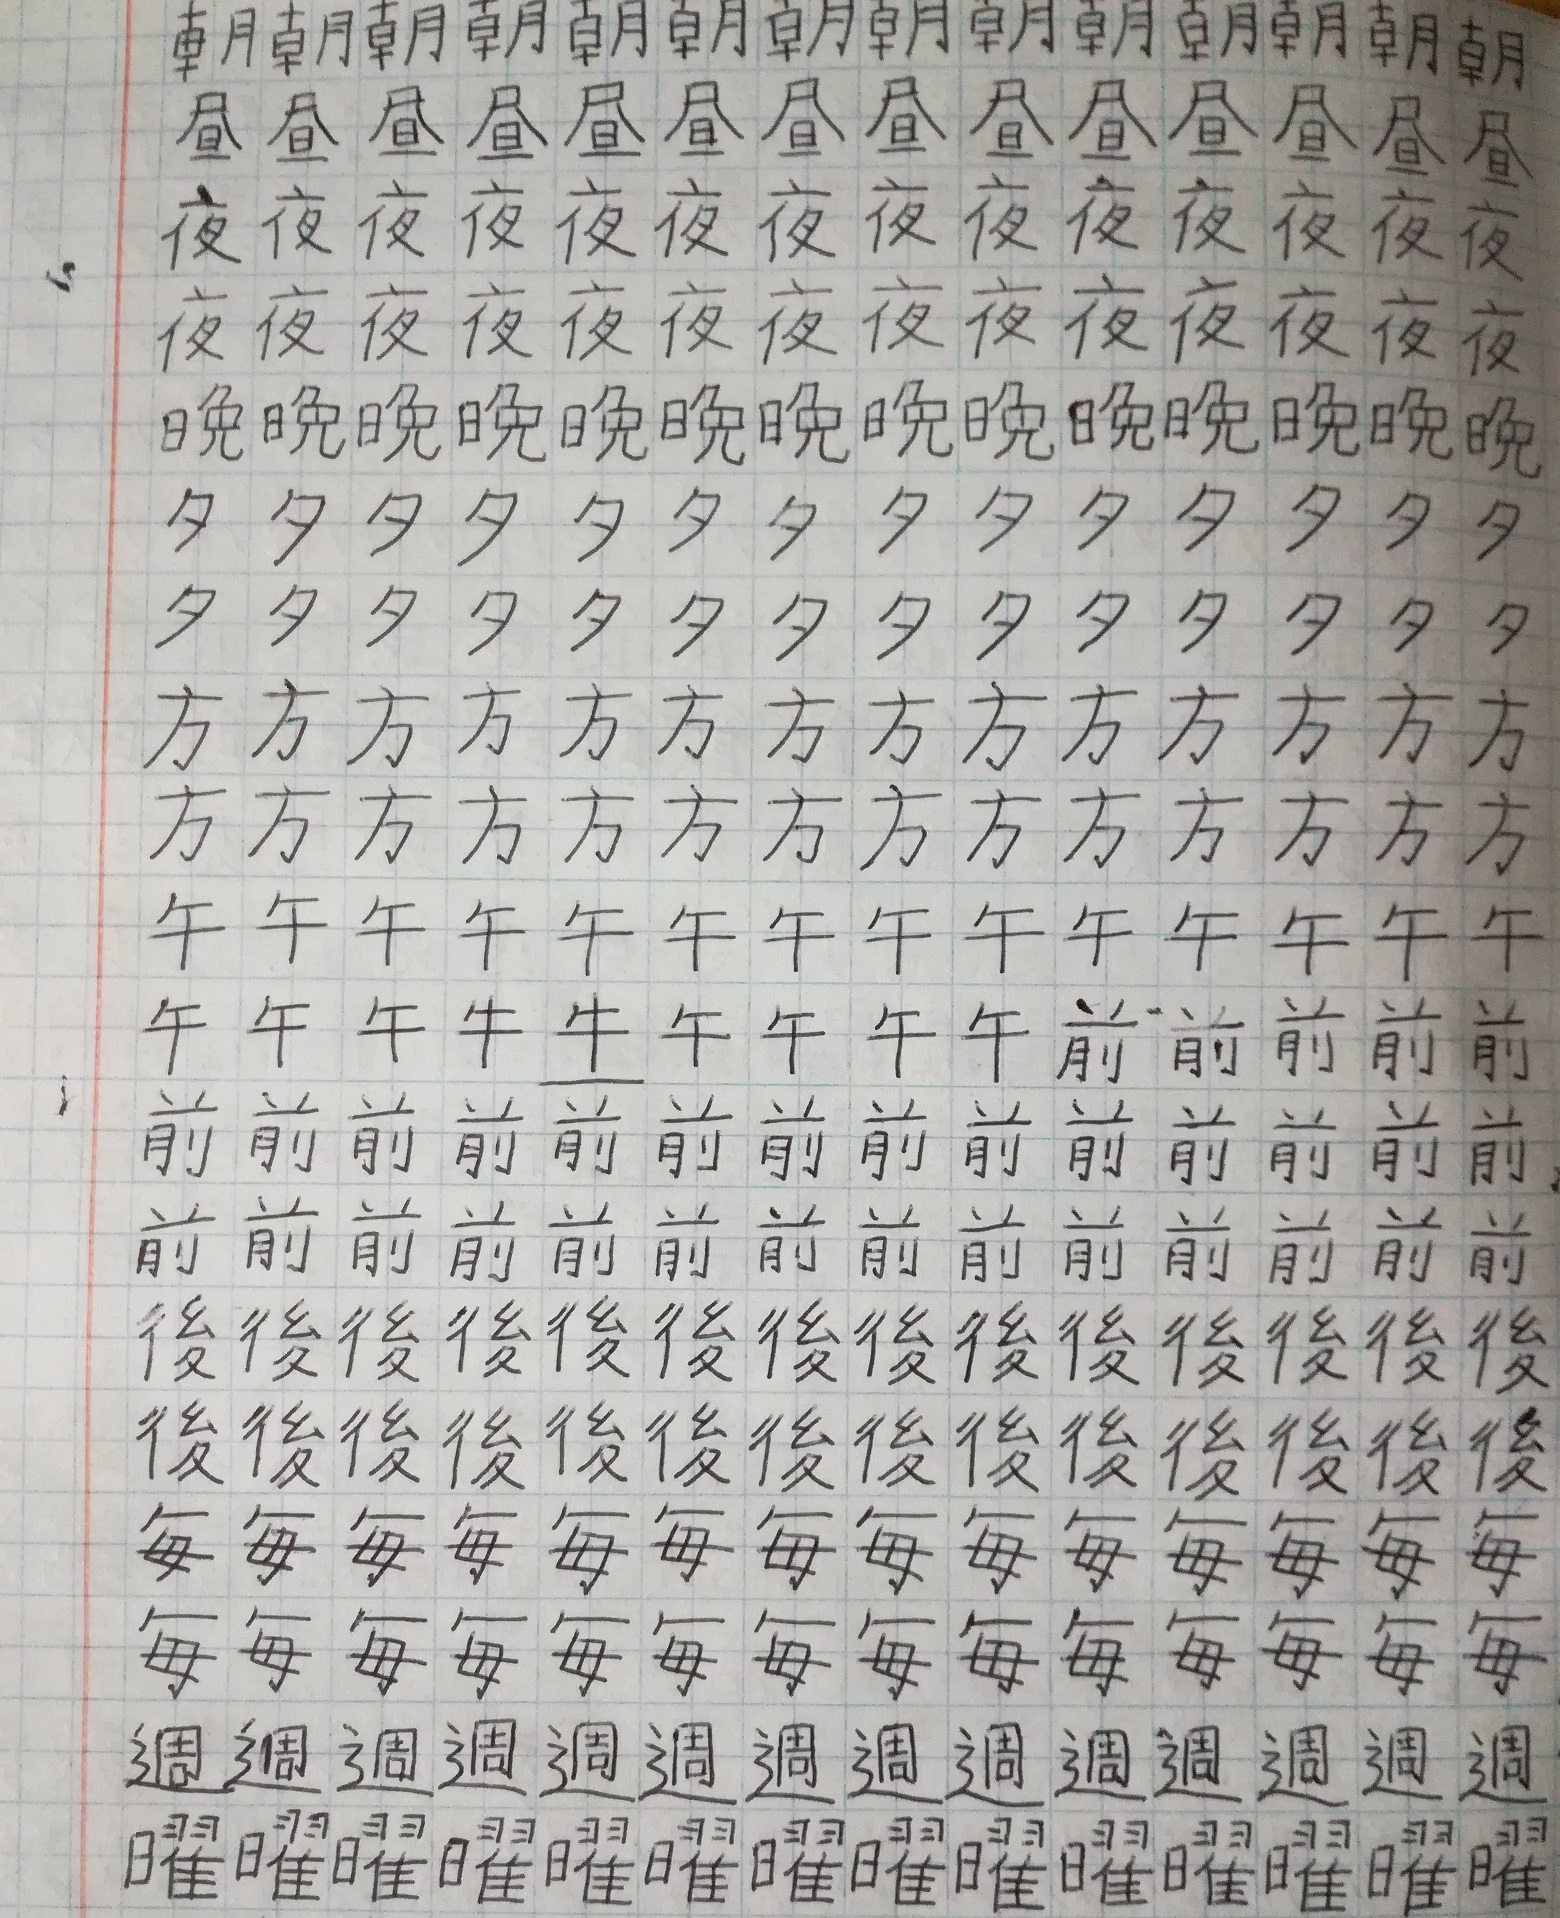 朝朝朝朝朝朝朝朝朝朝朝朝朝朝
昼昼昼昼昼昼昼昼昼昼昼昼昼昼
夜夜夜夜夜夜夜夜夜夜夜夜夜夜
夜夜夜夜夜夜夜夜夜夜夜夜夜夜
晩晩晩晩晩晩晩晩晩晩晩晩晩晩
夕夕夕夕夕夕夕夕夕夕夕夕夕夕
夕夕夕夕夕夕夕夕夕夕夕夕夕夕
方方方方方方方方方方方方方方
方方方方方方方方方方方方方方
午午午午午午午午午午午午午午
午午午牛牛午午午午前前前前前
前前前前前前前前前前前前前前
前前前前前前前前前前前前前前
後後後後後後後後後後後後後後
後後後後後後後後後後後後後後
毎毎毎毎毎毎毎毎毎毎毎毎毎毎
毎毎毎毎毎毎毎毎毎毎毎毎毎毎
週週週週週週週週週週週週週週
曜曜曜曜曜曜曜曜曜曜曜曜曜曜